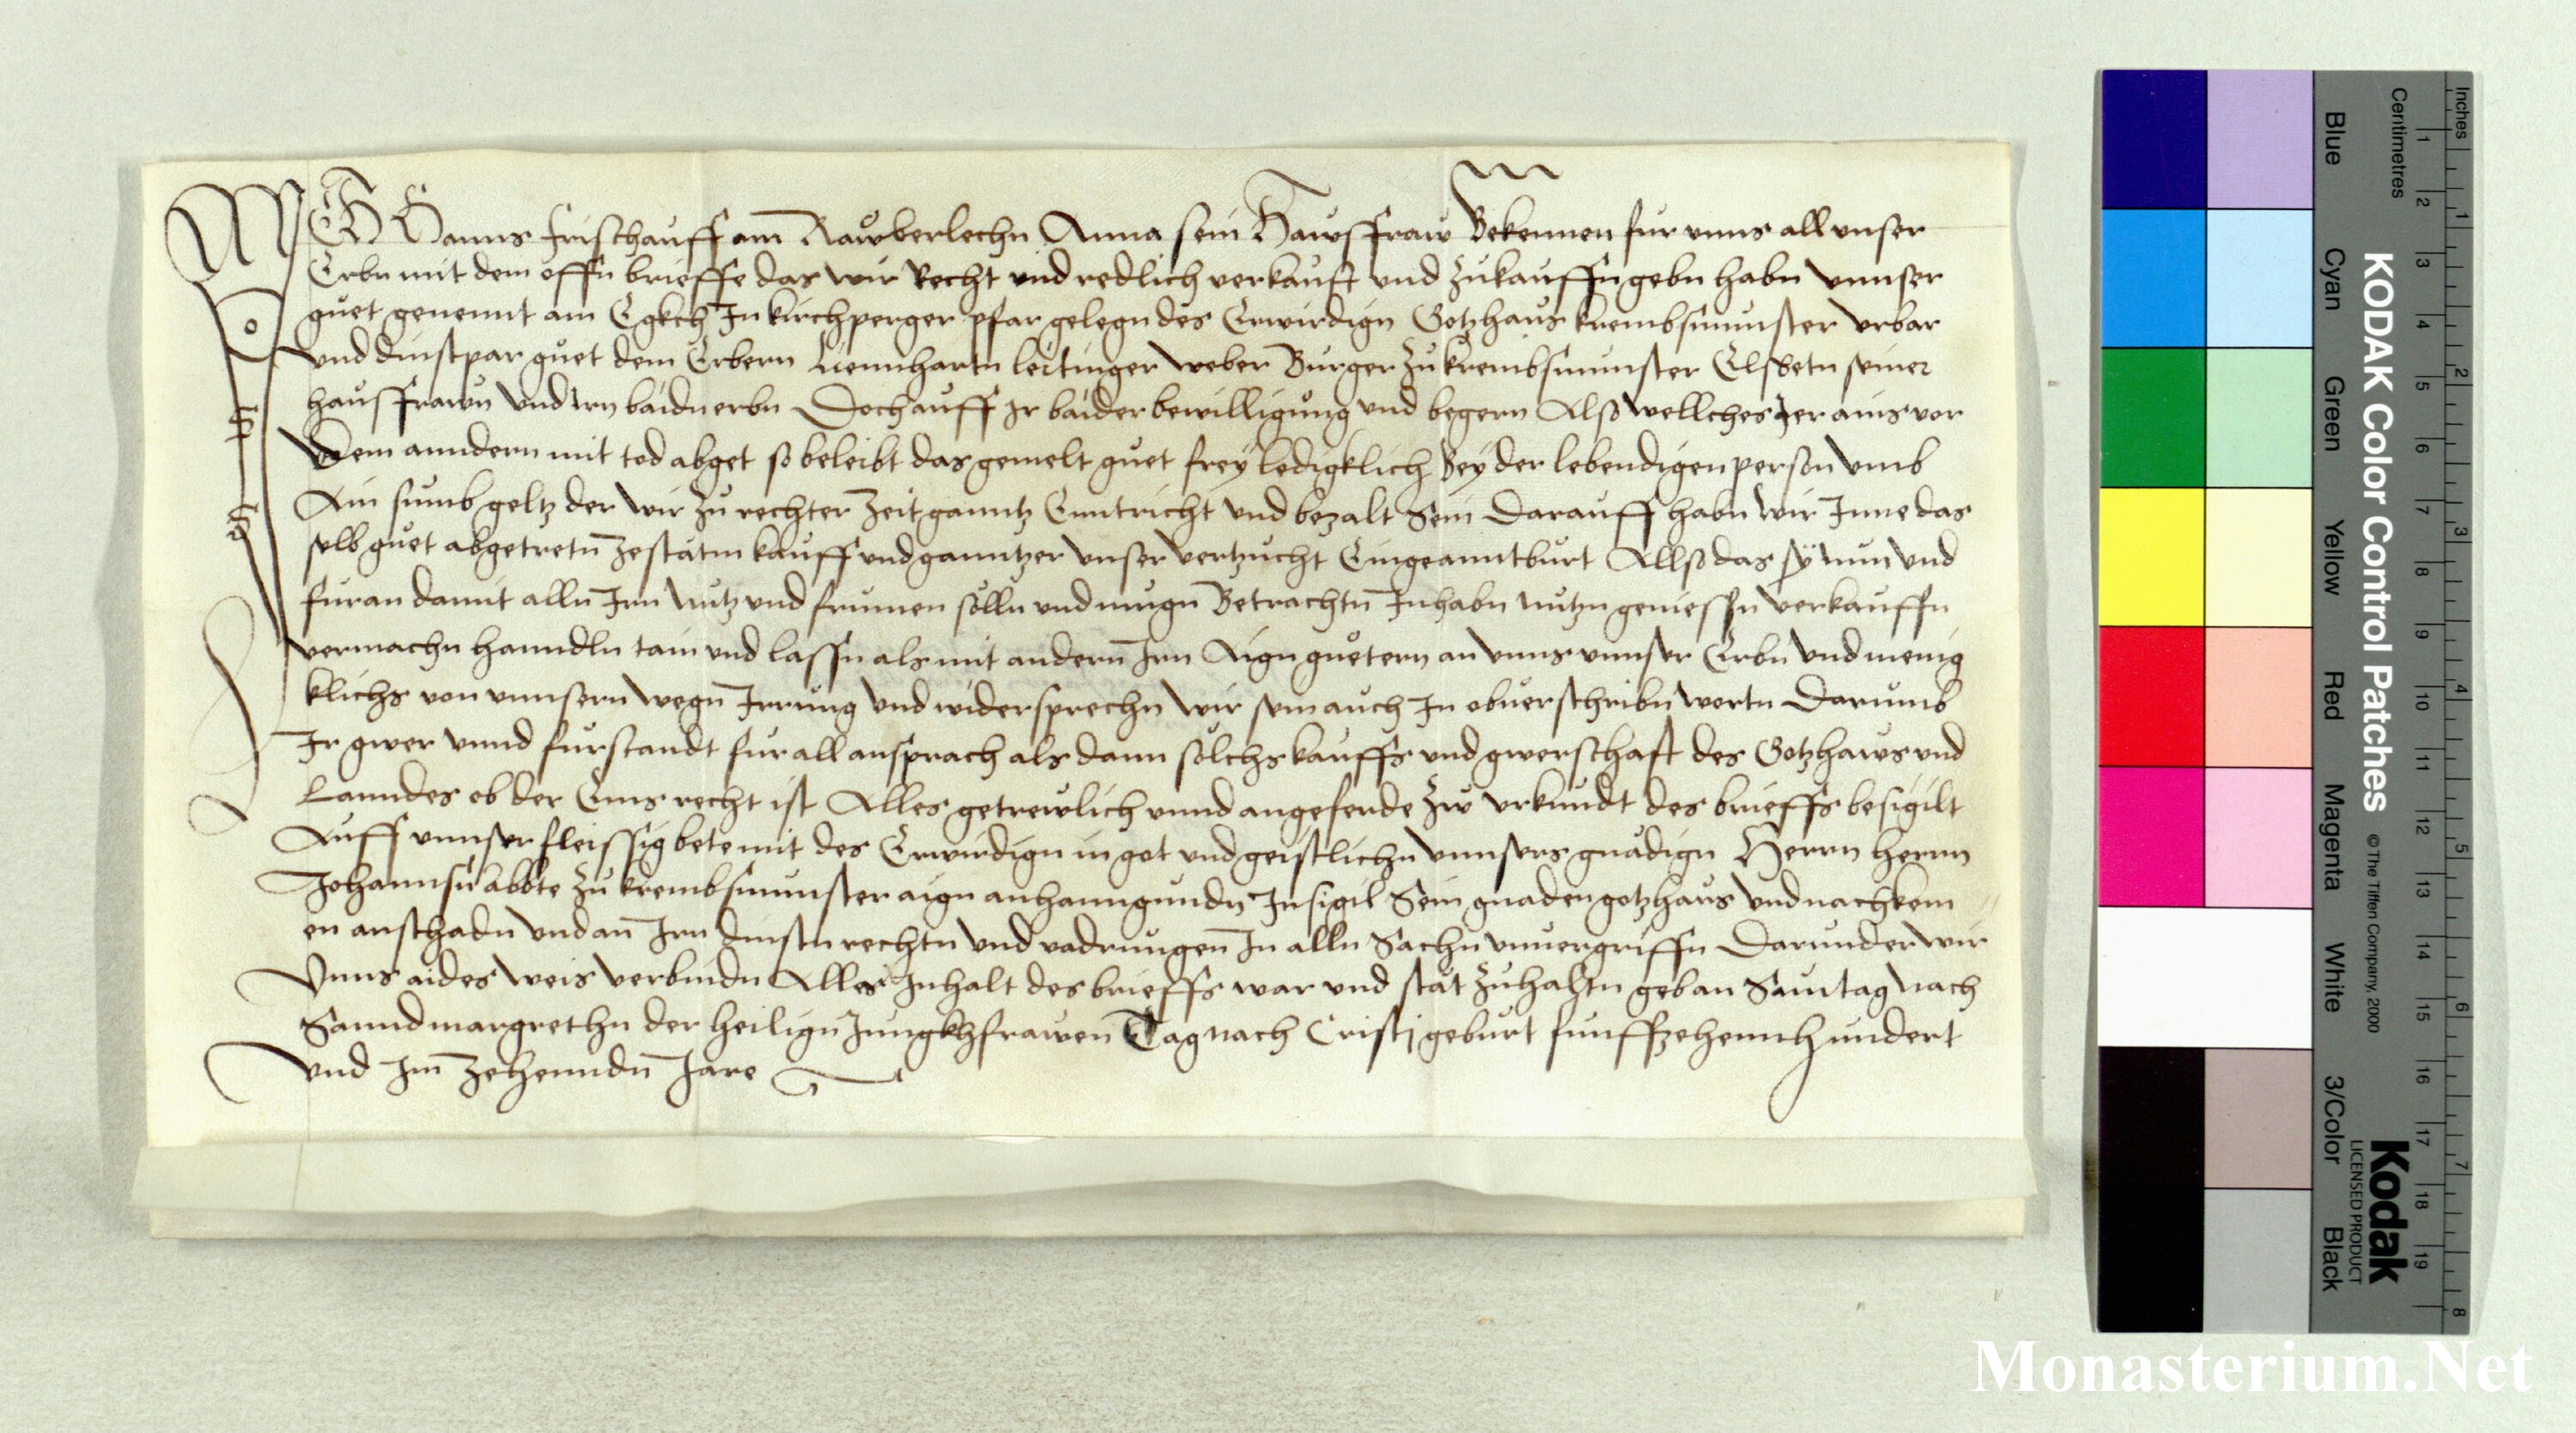 ICH Hanns frischauff am Rawberlechn Anna sein Hawsfraw Bekennen fur vnns all vnser
Erbn mit dem offn brieffe das wir Recht vnd redlich verkauft vnd zukauffn gebn habn vnnser
guet genennt am Egkch In kirchperger pfar gelegn des Erwirdign Gotzhaus krembsmunster vrbar
vnd dinstpar guet dem Erbern Liennhartn leitinger weber Burger zu krembsmunster Elsbetn seiner
hausfrawn vnd irn baidn erbn Doch auff Ir baider bewilligung vnd begern Also wellches Ier ains vor
dem anndern mit tod abget so beleibt das gemelt guet frey ledigklich Bey der lebendigen person vmb
Ain sumb geltz der wir zu rechter zeit ganntz Enntricht vnd bezalt Sein Darauff habn wir Inne das
selb guet abgetretn zestatm kauff vnd ganntzer vnser vertzucht Eingeanntburt Allso das sy nun vnd
furan damit alln Irn nutz vnd frumen solln vnd mugn Betrachtn Inhabn nutzn geniessn verkauffn
vermachn hanndln tain vnd lassn als mit andern Irn Aign guetern an vnns vnnser Erbn vnd menig
klichs von vnnsern wegn Irrung vnd widersprechn wir sein auch In obuerschribn wortn Darumb
Ir gwer vnnd furstandt fur all ansprach als dann solchs kauffs vnd gwerschaft des Gotzhaws vnd
Lanndes ob der Enns recht ist Alles getrewlich vnnd angeferde Zw vrkundt des brieffs besigilt
Auff vnnser fleissig bete mit des Erwirdign in got vnd geistlichn vnnsers gnadign Herrn herrn
Johannsn abbte zu krembsmunster aign anhanngundn Insigil Sein gnaden gotzhaus vnd nachkom
en anschadn vnd an Irn dinstn rechtn vnd vadrungen In alln Sachn vnuergriffn Darunder wir
Vnns aides weis verbindn Alles Inhalt des brieffs war vnd stat zuhaltn geban Suntag nach
Sannd margrethn der heilign Jungkhfrawen Tag nach Cristi geburt funffzehennhundert
vnd Im zehenndn Jare
KODAK Color Control Patches © The Tiffen Company, 2000
Kodak
LICENSED PRODUCT
Blue Cyan Green Yellow Red Magenta White 3/Color Black
Centimetres 1 2 3 4 5 6 7 8 9 10 11 12 13 14 15 16 17 18 19
Inches 1 2 3 4 5 6 7 8
Monasterium.Net